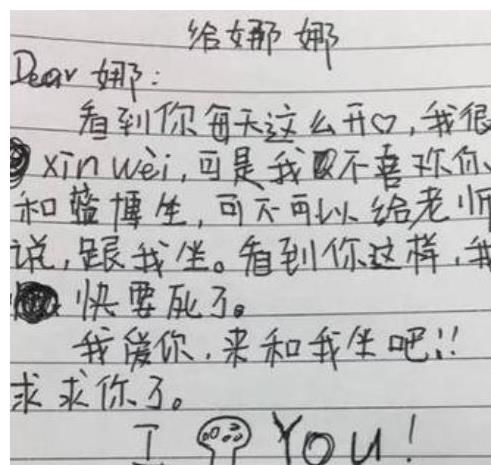 给娜娜
Dear 娜:
看到你每天这么开♡,我很
xin wèi,可是我不喜欢你
和蓝博生,可不可以给老师
说,跟我坐。看到你这样,我
快要死了。
我爱你,来和我坐吧!!
求求你了。
I You!